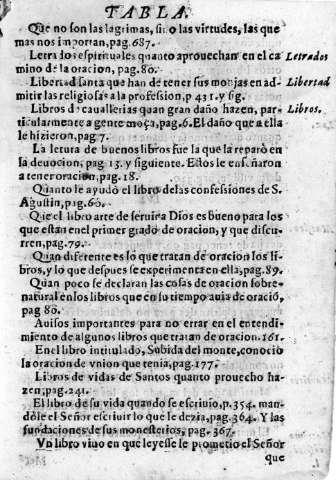 TABLA.
Que no son las lagrimas, sino las virtudes, las que
mas nos importan, pag. 687.
Letrados espirituales quanto aprouechan en el ca Letrados
mino de la oracion, pag. 80.
Libertad santa que han de tener sus monjas en ad- Libertad
mitir las religiosas a la profession, p 431. y sig.
Libros de cauallerias quan gran daño hazen, par- Libros.
ticularmente a gente moça, pag. 6. El daño que a ella
le hizieron, pag. 7.
La letura de buenos libros fue la que la reparò en
su deuocion, pag. 13. y siguiente. Ellos le enseñaron
a tener oracion, pag. 18.
Quanto le ayudò el libro de las confessiones de S.
Agustin, pag. 60.
Que el libro arte de seruir a Dios es bueno para los
que estan en el primer grado de oracion, y que discu-
rren, pag. 79.
Quan diferente es lo que tratan de oracion los li-
bros, y lo que despues se experimenta en ella, pag. 89.
Quan poco se declaran las cosas de oracion sobre-
natural en los libros que en su tiempo auia de oració,
pag 80.
Auisos importantes para no errar en el entendi-
miento de algunos libros que tratan de oracion. 161.
En el libro intitulado, Subida del monte, conocio
la oracion de vnion que tenia, pag. 177.
Libros de vidas de Santos quanto prouecho ha-
zen, pag. 241.
El libro de su vida quando se escriuio, p. 354. man-
dòle el Señor escriuir lo que le dezia, pag. 364. Y las
fundaciones de sus monesterios, pag. 367.
Vn libro viuo en que leyesse le prometio el Señor
que